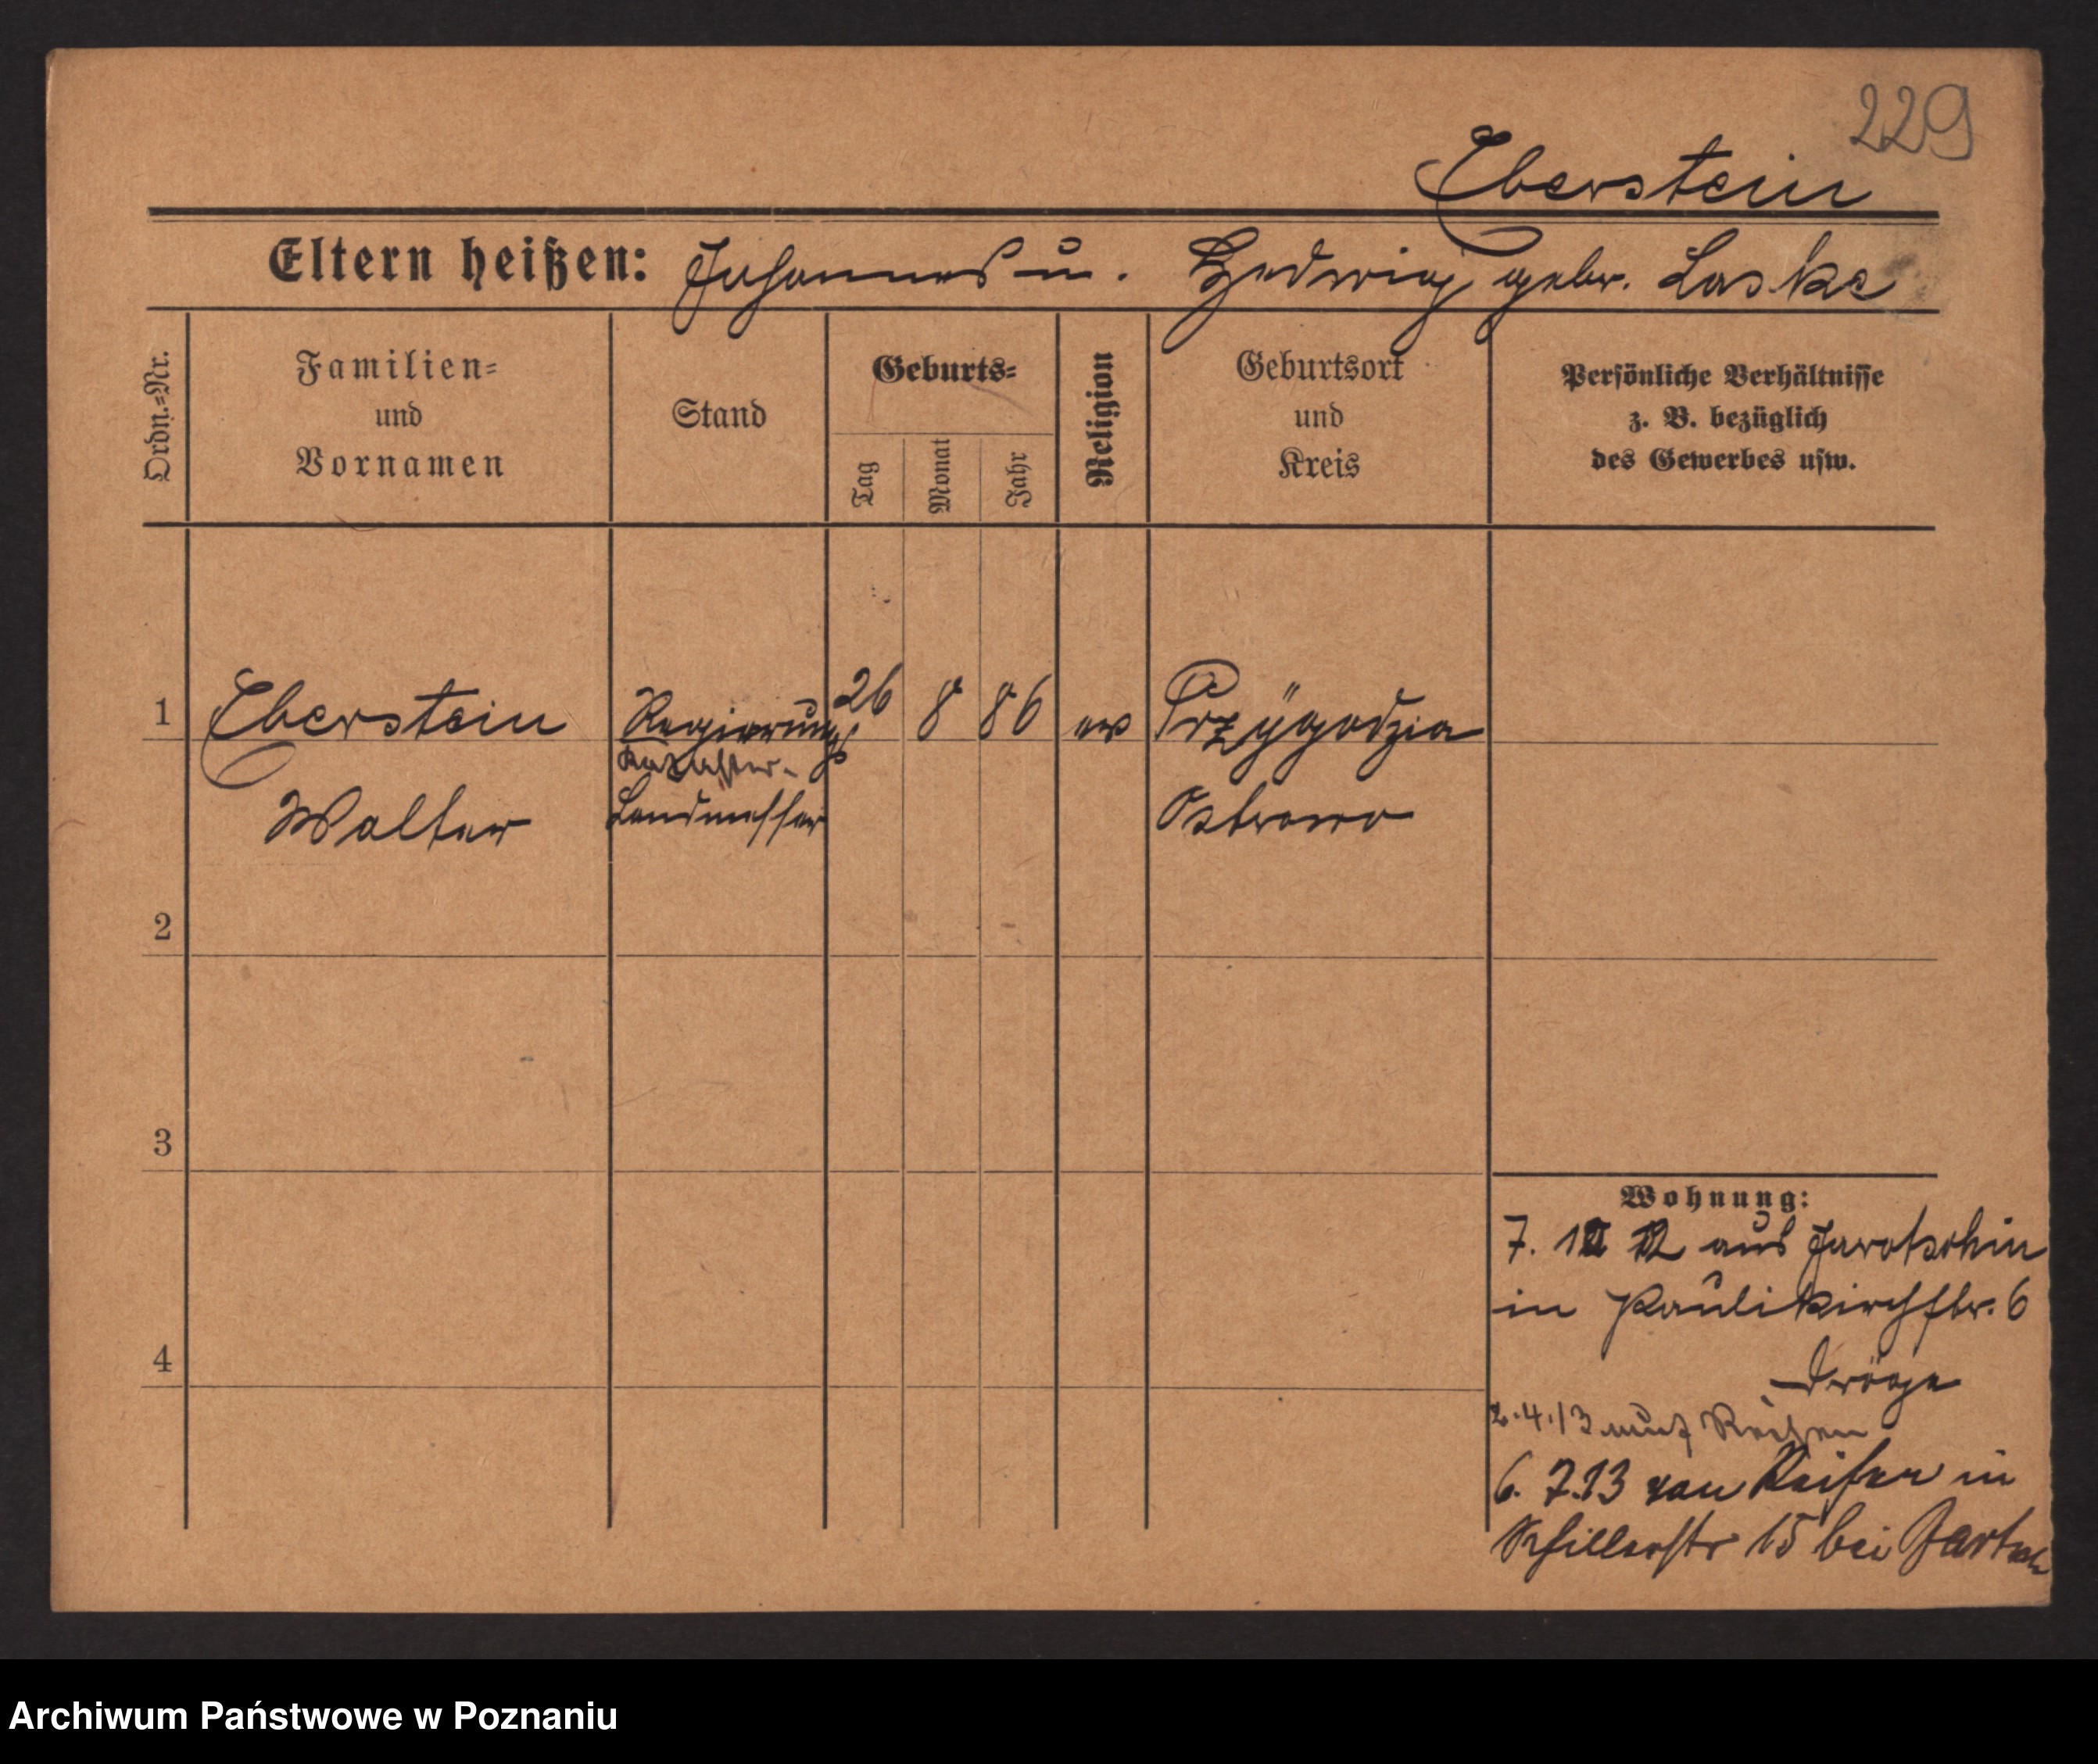 229
Eberstein
Eltern heißen: Johannes u. Hedwig gebr. Laske
Ordn.-Nr.
Familien-
und
Vornamen
Stand
Geburts-
Tag
Monat
Jahr
Religion
Geburtsort
und
Kreis
Persönliche Verhältnisse
z. B. bezüglich
des Gewerbes usw.
1 Eberstein Regierungs 26 8 86 ev Przygodzia
Kataster-
Walter Landmesser Ostrowo
2
3
4
Wohnung:
7. 12 aus Jarotschin
in Paulikirchstr. 6
Dröge
2.4.13 auf Reisen
6. 7.13 von Reisen in
Schillerstr 15 bei
Archiwum Państwowe w Poznaniu